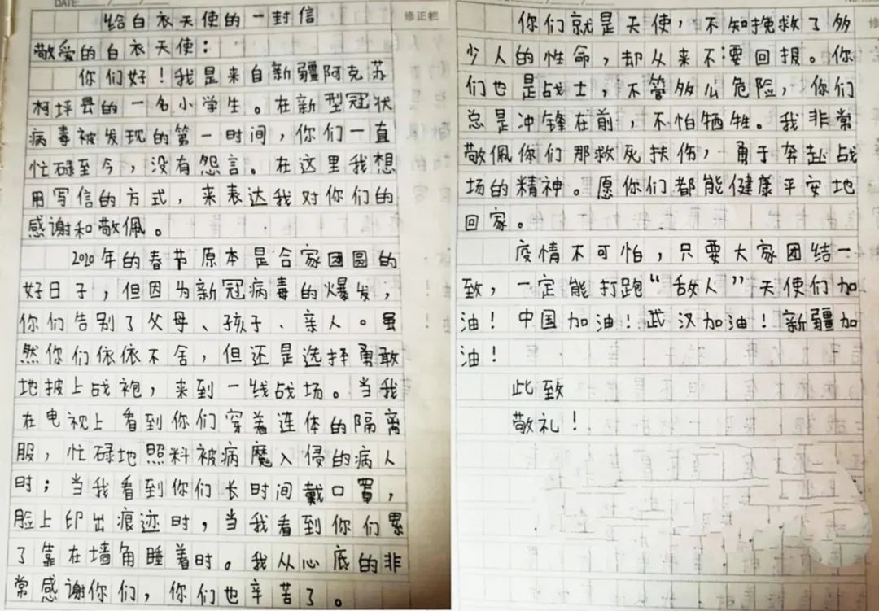 DATE
修正栏
给白衣天使的一封信
敬爱的白衣天使：
你们好！我是来自新疆阿克苏
柯坪县的一名小学生。在新型冠状
病毒被发现的第一时间，你们一直
忙碌至今，没有怨言。在这里我想
用写信的方式，来表达我对你们的
感谢和敬佩。
2020年的春节原本是合家团圆的
好日子，但因为新冠病毒的爆发，
你们告别了父母、孩子、亲人。虽
然你们依依不舍，但还是选择勇敢
地披上战袍，来到一线战场。当我
在电视上看到你们穿着连体的隔离
服，忙碌地照料被病魔入侵的病人
时；当我看到你们长时间戴口罩，
脸上印出痕迹时，当我看到你们累
了靠在墙角睡着时。我从心底的非
常感谢你们，你们也辛苦了。
你们就是天使，不知挽救了多
少人的性命，却从来不要回报。你
们也是战士，不管多么危险，你们
总是冲锋在前，不怕牺牲。我非常
敬佩你们那救死扶伤，勇于奔赴战
场的精神。愿你们都能健康平安地
回家。
疫情不可怕，只要大家团结一
致，一定能打跑“敌人”天使们加
油！中国加油！武汉加油！新疆加
油！
此致
敬礼！